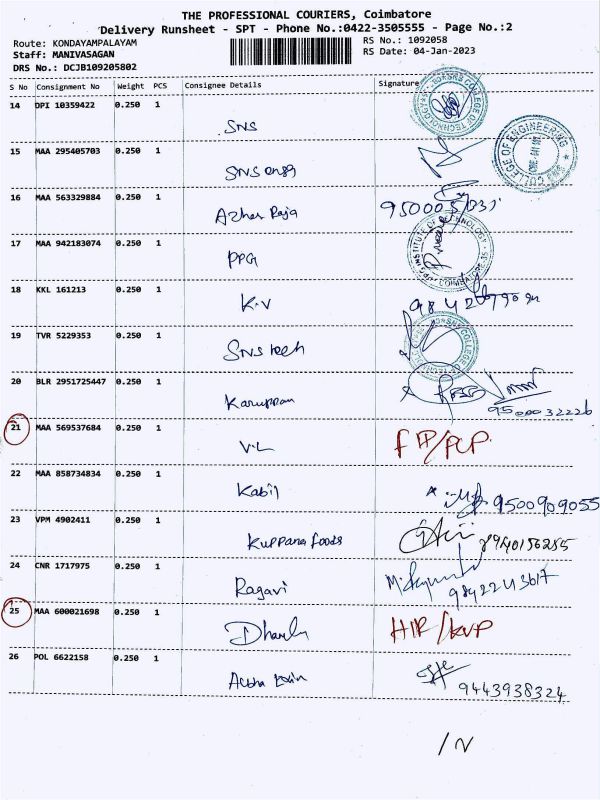 THE PROFESSIONAL COURIERS, Coimbatore
Delivery Runsheet - SPT - Phone No.:0422-3505555 - Page No.:2
Route: KONDAYAMPALAYAM
RS No.: 1092058
Staff: MANIVASAGAN
RS Date: 04-Jan-2023
DRS No.: DCJB109205802
S No Consignment No Weight PCS Consignee Details Signature
14 DPI 10359422 0.250 1
SNS
15 MAA 295405703 0.250 1
SNS engg
16 MAA 563329884 0.250 1
Azhar Raja
17 MAA 942183074 0.250 1
PPG
18 KKL 161213 0.250 1
K.V
19 TVR 5229353 0.250 1
SNS tech
20 BLR 2951725447 0.250 1
Karuppan
9500032226
21 MAA 569537684 0.250 1
V.L
22 MAA 858734834 0.250 1
Kabil 9500909055
23 VPM 4902411 0.250 1
Kuppana foods
24 CNR 1717975 0.250 1
Ragavi
25 MAA 600021698 0.250 1
26 POL 6622158 0.250 1
9443938324